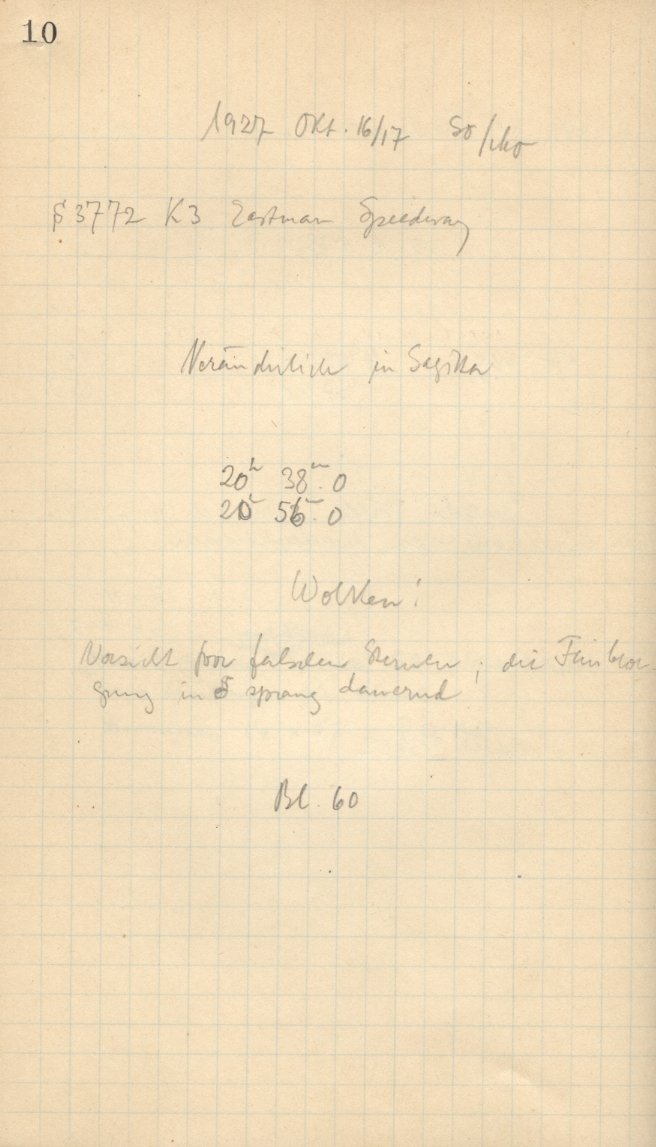 10
1927 Okt. 16/17 So/Mo
S 3772 K3 Eastman Speedway
Veränderliche in Sagitta
20h 38m.0
20h 56m.0
Wolken!
Vorsicht vor falschen Sternen; die Feinbewe-
gung in δ sprang dauernd
Bl. 60